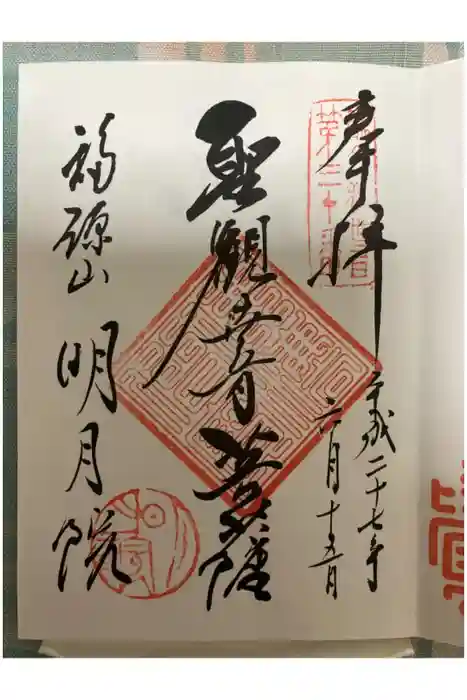 奉拝
平成二十七年
六月十五日
聖觀世音菩薩
福源山 明月院